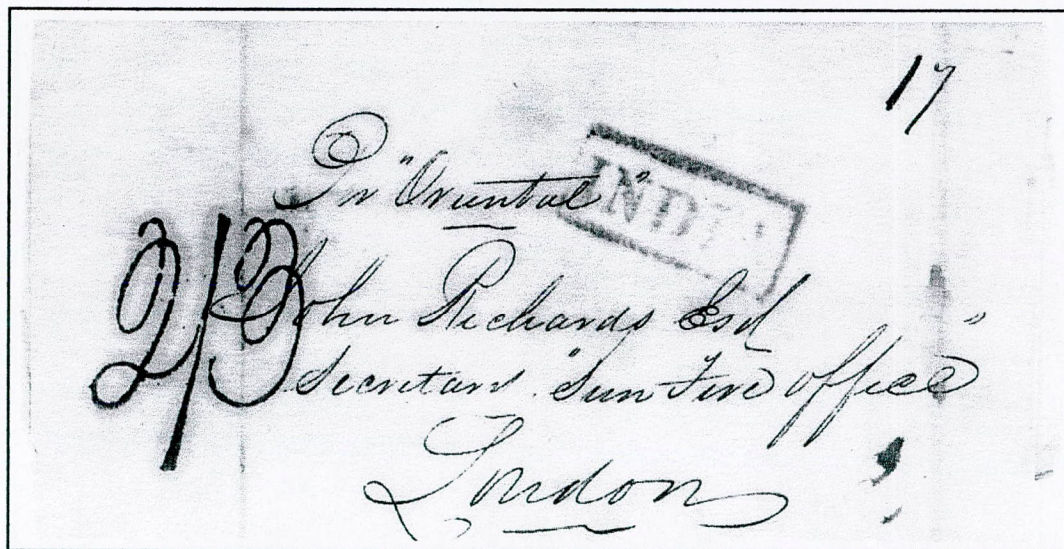 17
Pr "Oriental"
INDIA
2/3
John Richards Esq
Secretary "Sun Fire Office"
London